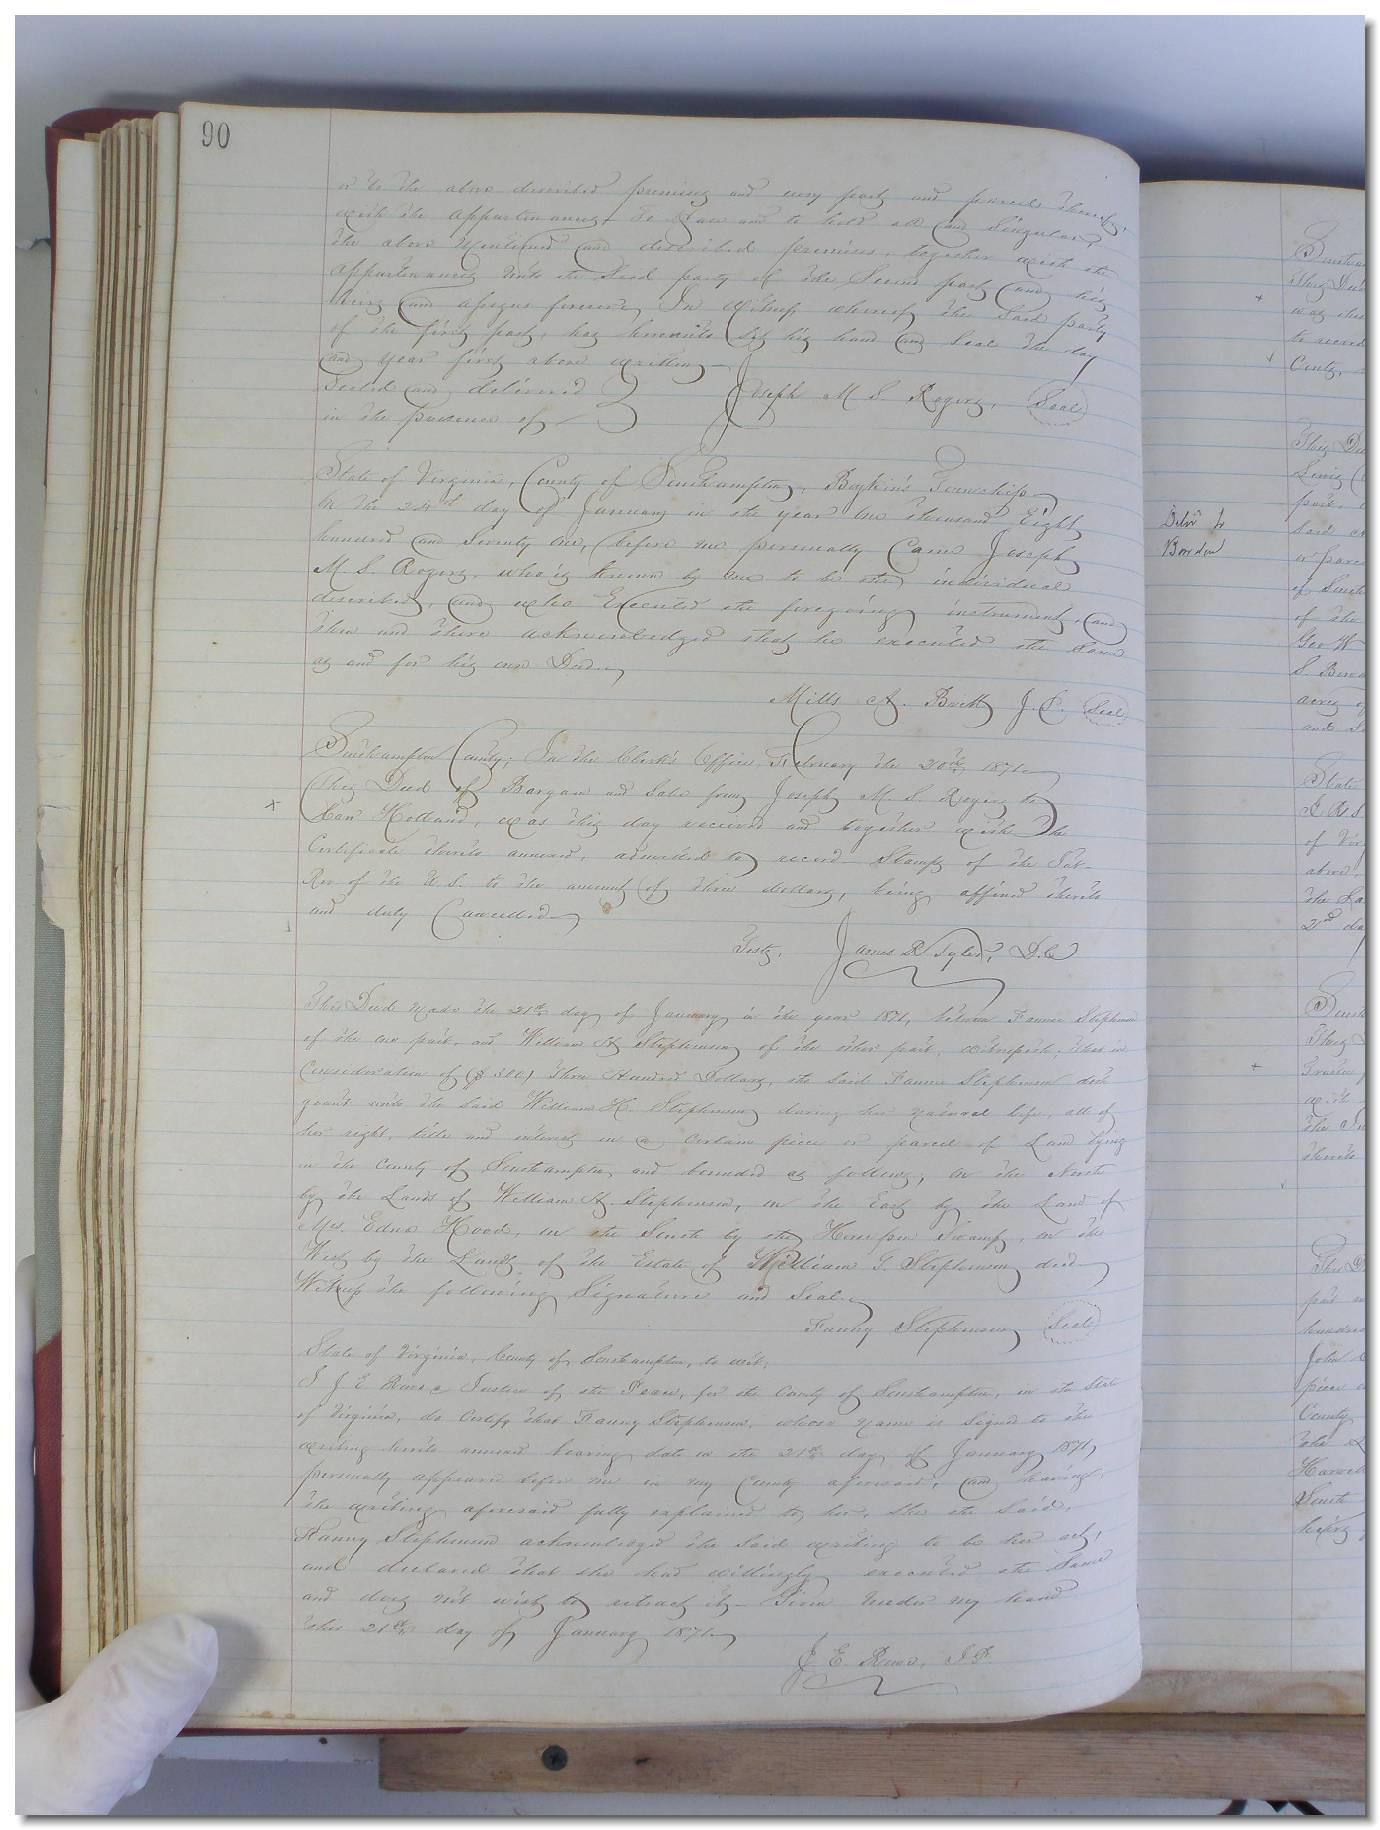 90
or to the above described premises and every part and parcel thereof,
with the appurtenances. To Have and to hold all and Singular,
the above mentioned and described premises, together with the
appurtenances unto the Said party of the Second part, and his
heirs and assigns forever, In Witness whereof the Said party
of the first part, has hereunto Set his hand and Seal the day
and year first above written,
Sealed and delivered Joseph M. S. Rogers, Seal
in the presence of
State of Virginia, County of Southampton, Boykin's Township
On the day of January in the year One thousand Eight
hundred and Seventy One, before me personally Came Joseph
M. S. Rogers, who is known by me to be the individual
described, and who Executed the foregoing instrument, and
then and there acknowledged that he executed the Same
as and for his own Deed.
Mills A. Britt J. P. Seal
Southampton County: In the Clerk's Office, February the 20th 1871
This Deed of Bargain and Sale from Joseph M. S. Rogers to
Holland, was this day received and together with the
Certificate thereto annexed, admitted to record - Stamps of the Int-
Rev of the U. S. to the amount of three dollars, being affixed thereto
and duly Cancelled
Teste, James R Tyler, D.C
This Deed made the 21st day of January in the year 1871, between Fannie Stephenson
of the one part, and William H Stephenson of the other part, witnesseth; that in
Consideration of ($300) Three Hundred Dollars, the Said Fannie Stephenson doth
grant unto the Said William H. Stephenson during her natural life, all of
her right, title and interest in a certain piece or parcel of Land lying
in the County of Southampton and bounded as follows, on the North
by the Lands of William H. Stephenson, on the East by the Land of
Mrs. Edna Hood, on the South by the Swamp, on the
West by the Lands of the Estate of William G. Stephenson decd
Witness the following Signature and Seal.
Fanny Stephenson Seal
State of Virginia, County of Southampton, to wit;
I J. E. a Justice of the Peace, for the County of Southampton, in the State
of Virginia, do Certify that Fanny Stephenson, whose name is Signed to the
writing hereto annexed bearing date on the 21st day of January 1871,
personally appeared before me in my County aforesaid, and having
the writing aforesaid fully explained to her, She the Said,
Fanny Stephenson acknowledged the Said writing to be her act,
and declared that she had willingly executed the Same
and does not wish to retract it. Given under my hand
this 21st day of January 1871.
J. E. J.P.
Delvd to
Bowden
This
to record
County,
said
of the
Geo W
acres of
and
State
of Vir
above
2nd da
This
with
thereto
part
John
piece
County
South